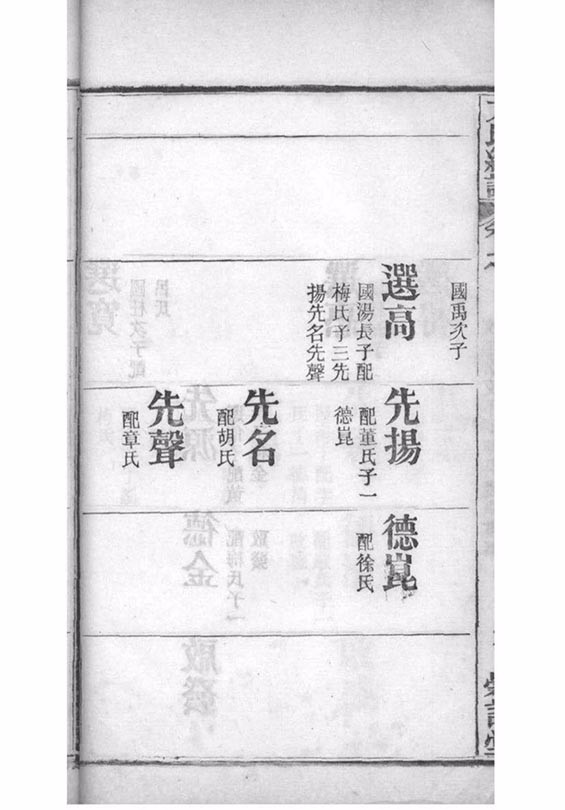 國禹次子
選高
國湯長子配
梅氏子三先
揚先名先聲
先揚
配董氏子一
德崑
先名
配胡氏
先聲
配章氏
德崑
配徐氏